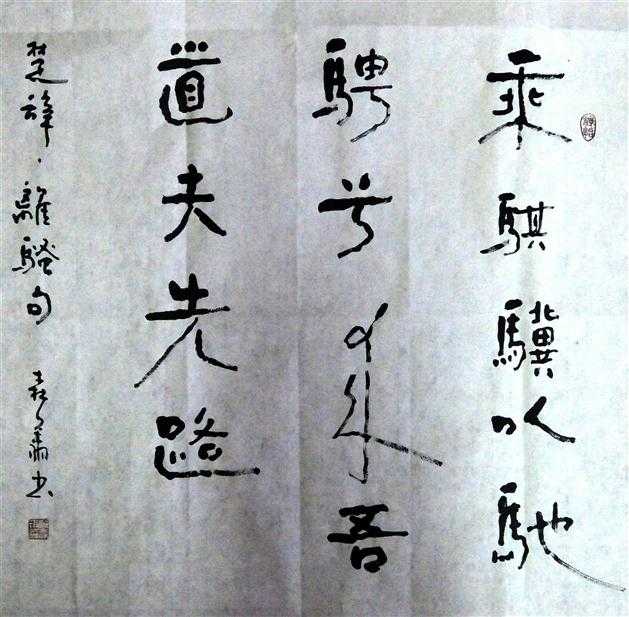 乘騏驥以馳
騁兮來吾
道夫先路
楚辭、離騷句 书